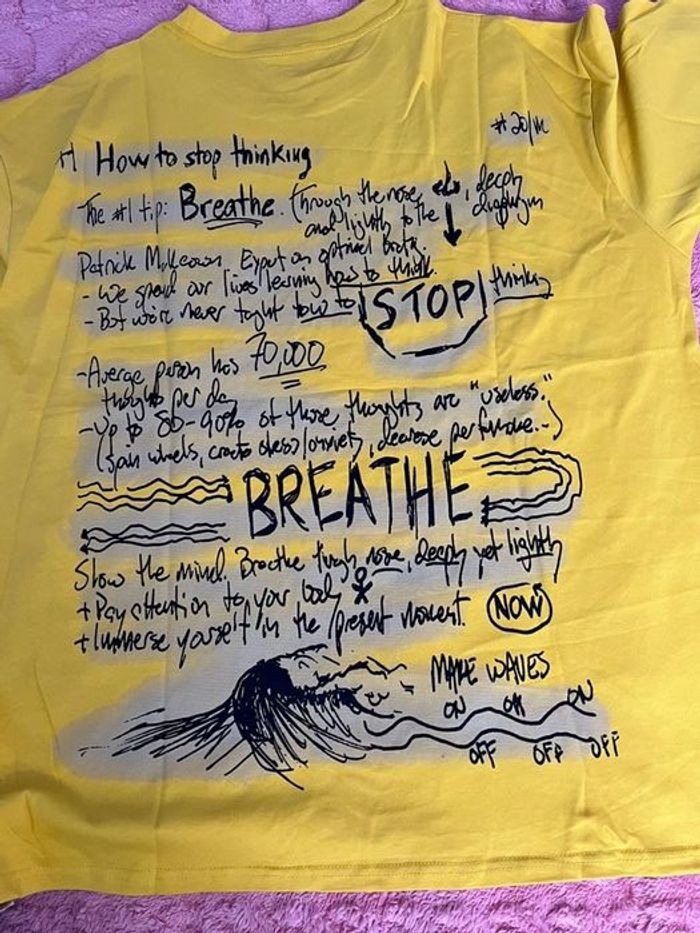 #20/m
How to stop thinking
The #1 tip: Breathe. Through the nose, deeply
and lightly to the diaphragm
Patrick McKeown Expert on optimal breath.
- We spend our lives learning how to think.
- But we're never taght how to STOP thinking
- Average person has 70,000
thoughts per day
- Up to 80-90% of those thoughts are "useless."
(spin wheels, create stress/anxiety, decrease performance..)
BREATHE
Slow the mind. Breathe through nose, deeply yet lightly
+ Pay attention to your body
+ Immerse yourself in the present moment. NOW
MAKE WAVES
ON ON ON
OFF OFF OFF